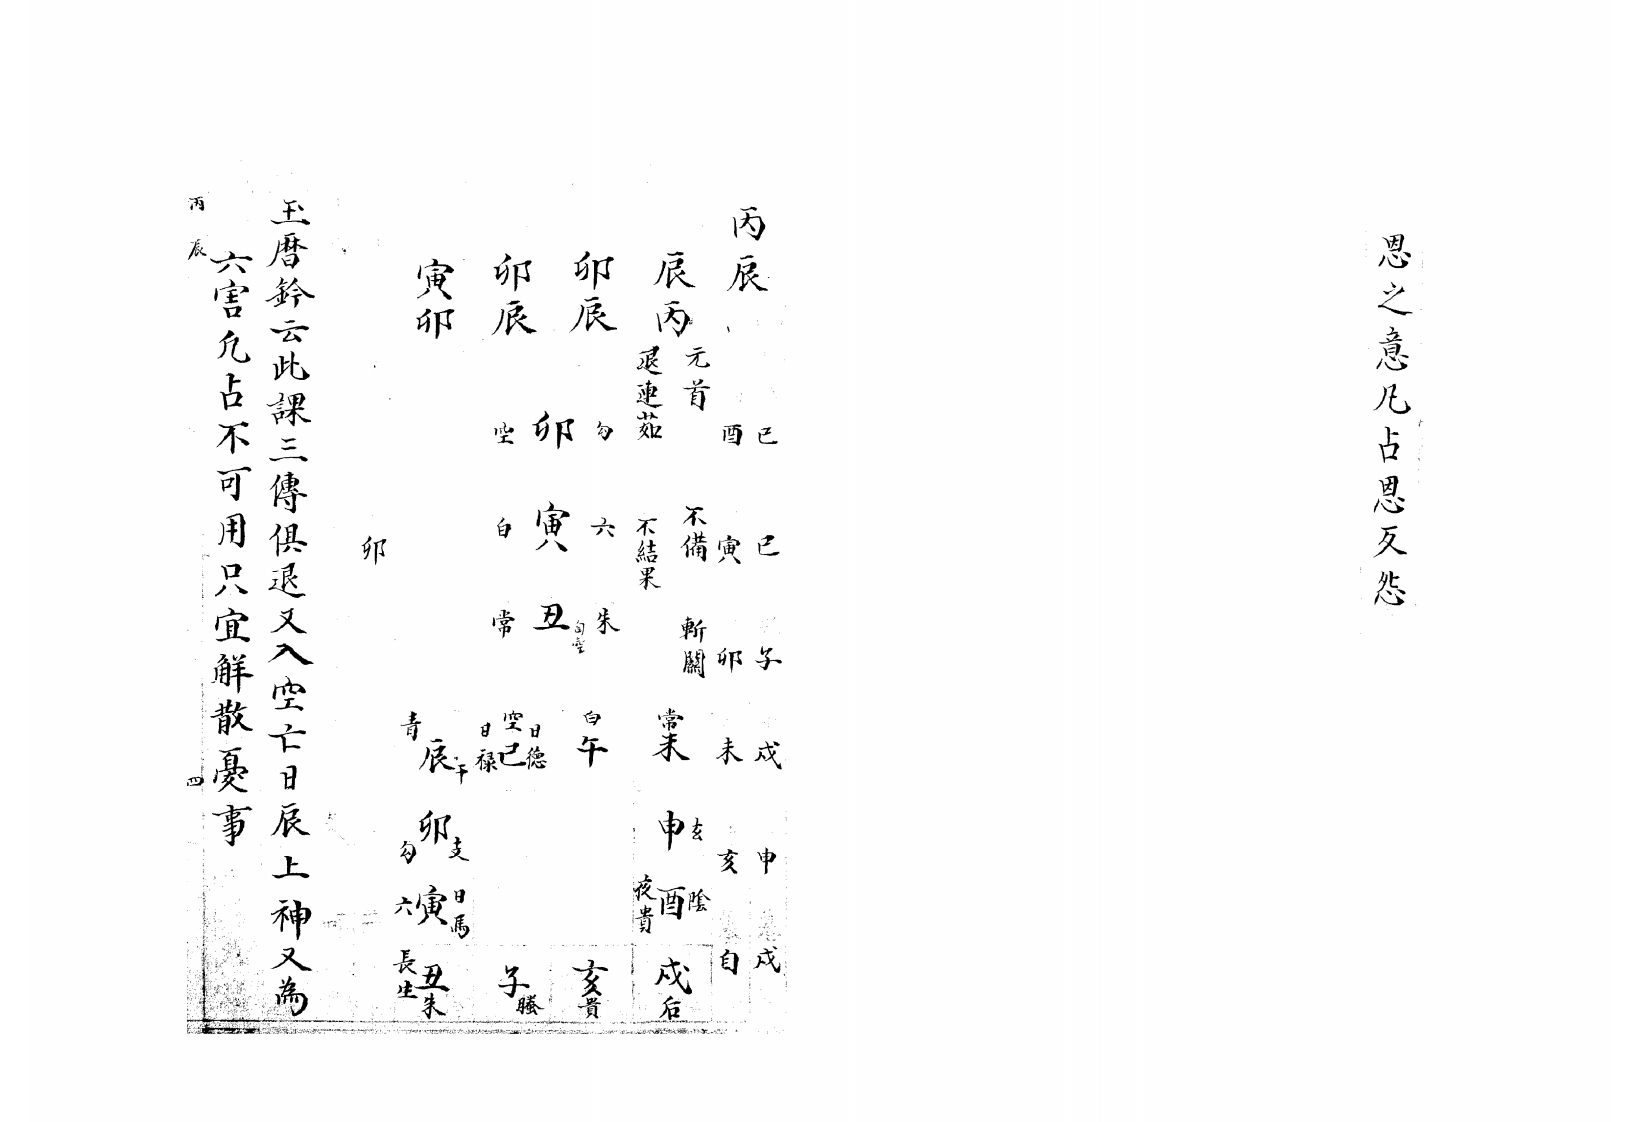 恩之意凡占恩反怨
丙辰
巳 巳 子 戌 申 戌
酉 寅 卯 未 亥 自
辰丙
元首 不備 斬關
退連茹 不結果
卯辰
勾 六 朱
卯 寅 丑 旬空
空 白 常
卯辰
寅卯
常未 申玄 酉陰 夜貴 戌后
白午 亥貴
日德 空巳 日祿 子螣
青辰 午 卯支 勾 寅日馬 六 丑朱 長生
卯
玉曆鈐云此課三傳俱退又入空亡日辰上神又為
六害凢占不可用只宜解散憂事
丙辰 四